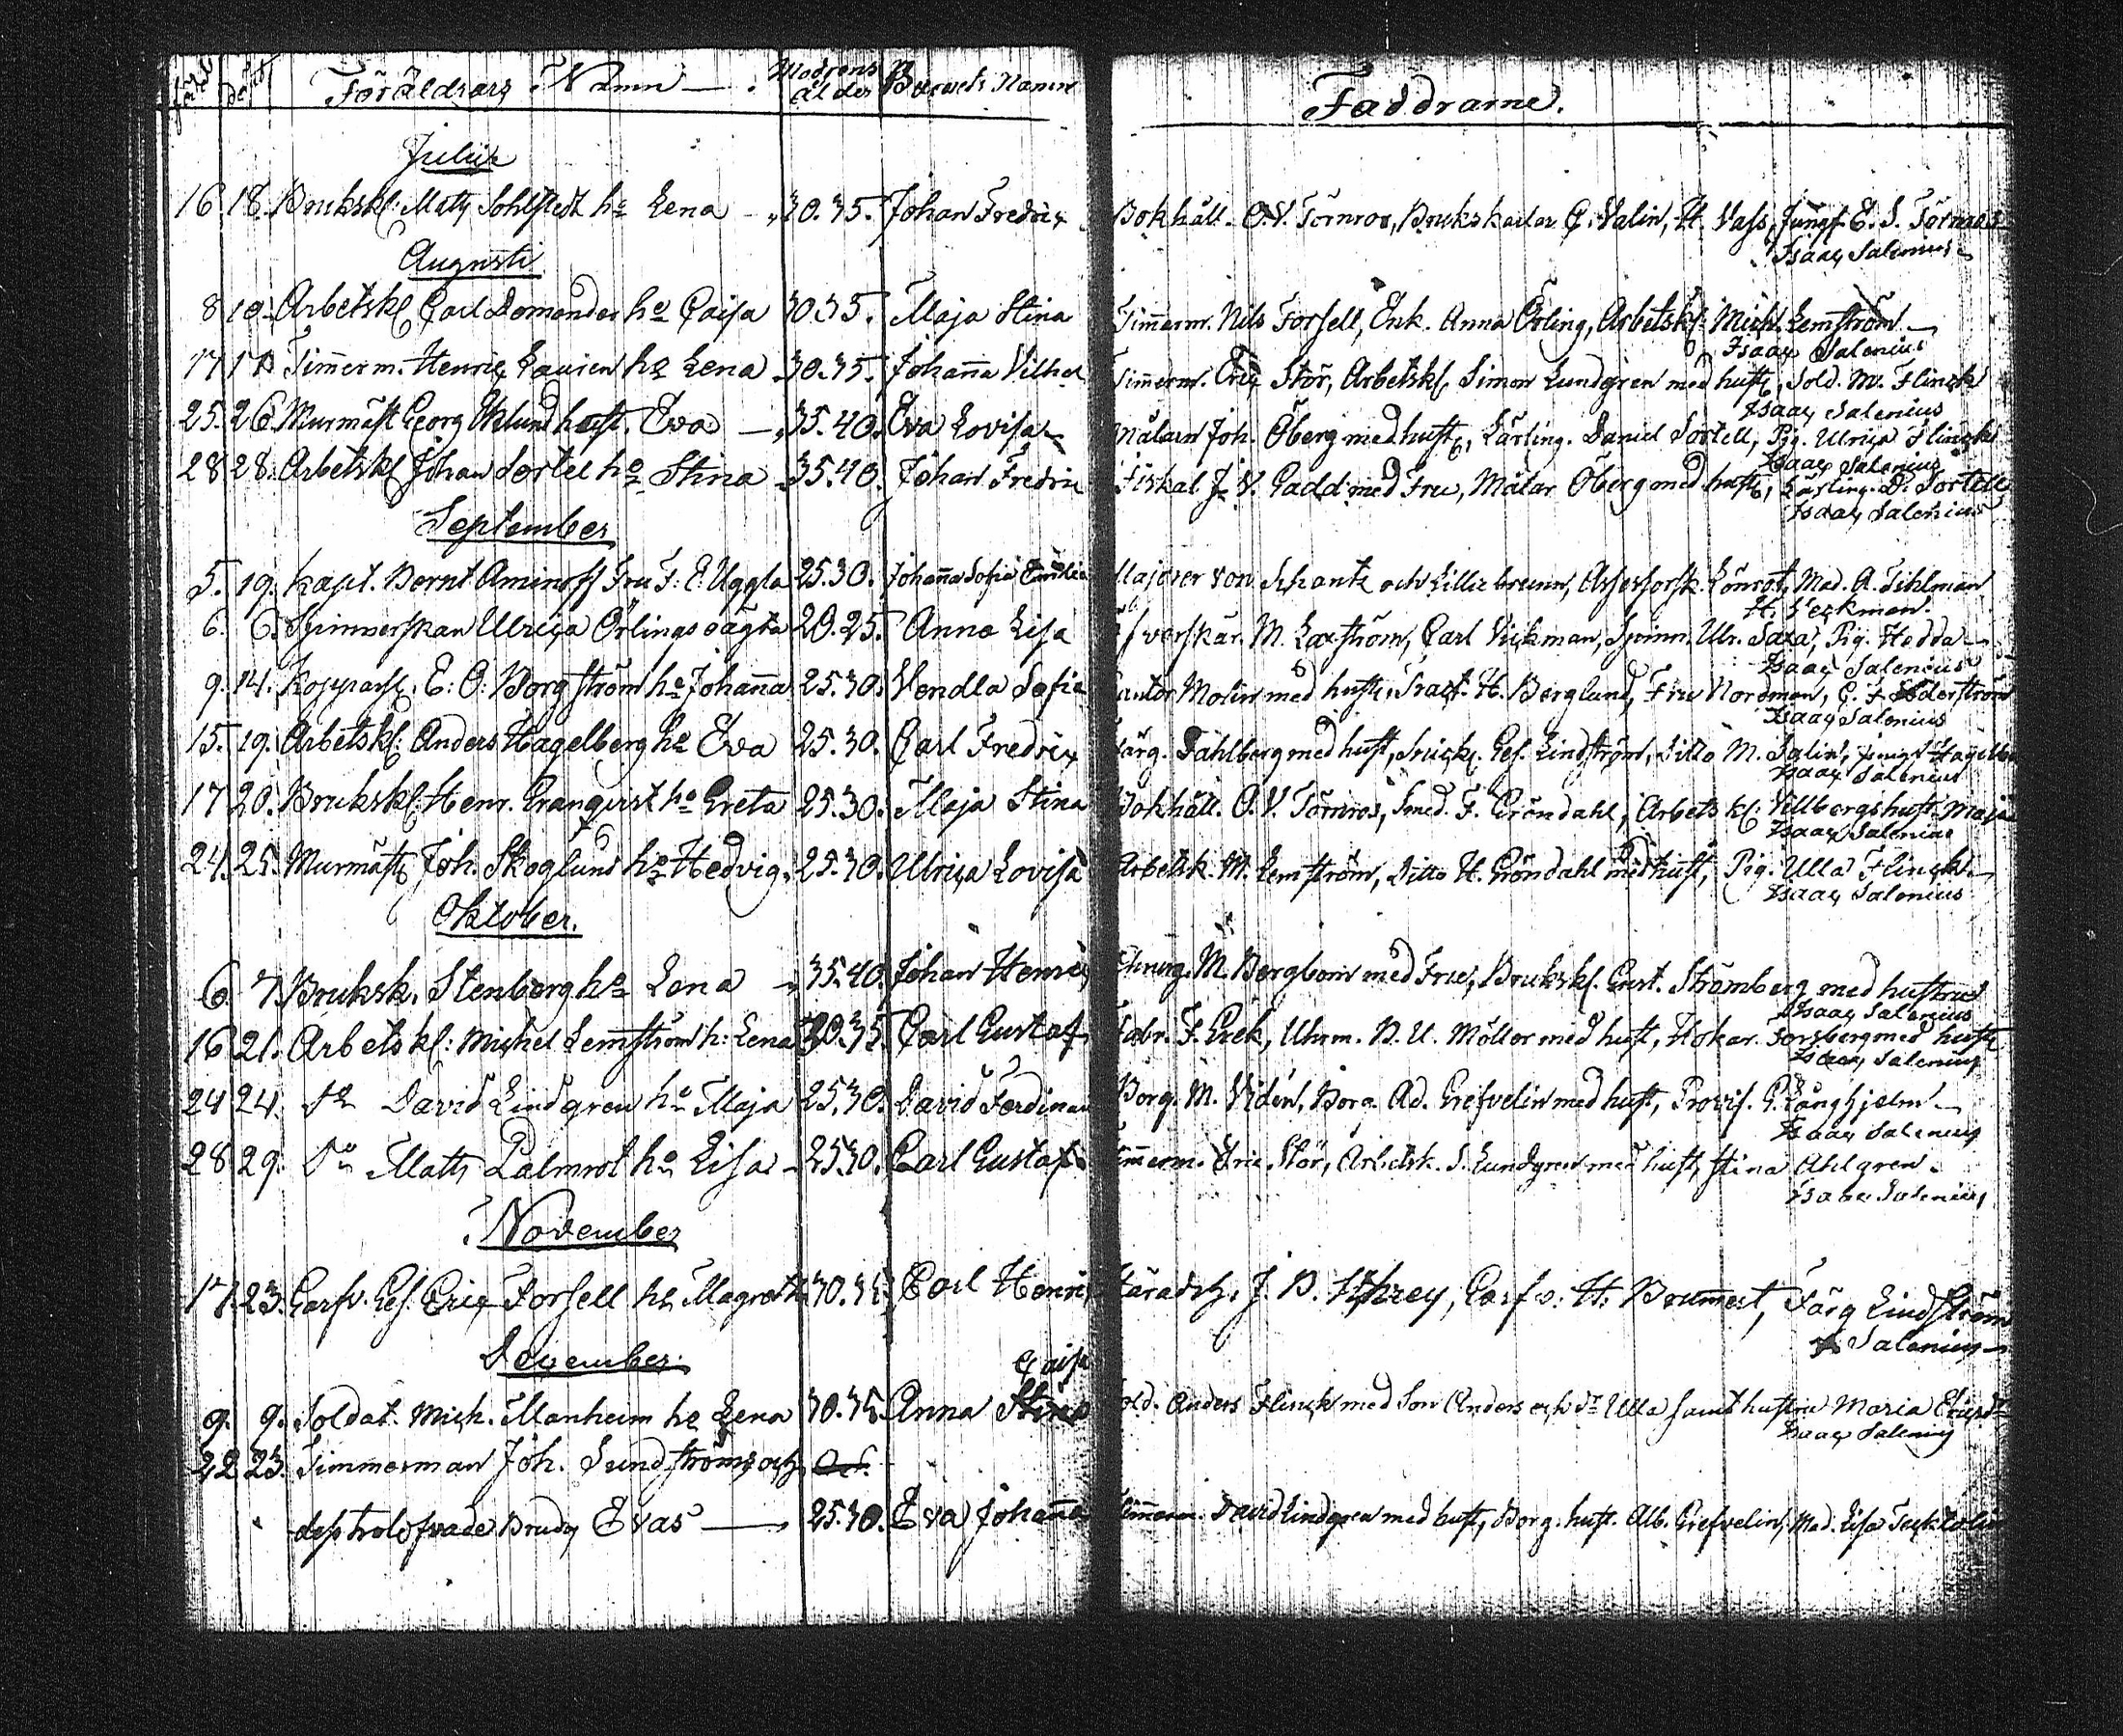 född döpt Föräldrars Namn Modrens ålder Barnets Namn
Julius
16. 18. Bruksk: Matts Sohlstedt h:u Lena 30.35. Johan Fredric
Augusti
8 10. Arbetsk: Carl Domander h:u Caisa 30.35. Maja Stina
17 17 Timmerm. Henric Lauren h:u Lena 30.35. Johanna Vilhel
25. 26. Murmäst Georg Eklund hust. Eva 35.40. Eva Lovisa
28 28. Arbetsk: Johan Sortel h:u Stina 35.40. Johan Fredric
September
5. 19. Kapt. Bernt Aminoff Fru F: E: Uggla 25.30. Johanna Sofia Emilia
6. 6. Spinnerskan Ulrica Örlings oägta 20.25. Anna Lisa
9. 14. Kopparsl. E: O: Borgström h:u Johanna 25.30. Vendla Sofia
15. 19. Arbetsk: Anders Hagelberg h:u Eva 25.30. Carl Fredric
17 20. Bruksk: Henr. Granqvist h:u Greta 25.30. Maja Stina
24. 25. Murmäst Joh. Skoglund h:u Hedvig 25.30. Ulrica Lovisa
Oktober.
6. 7. Bruksk. Stenberg h:u Lena 35.40. Johan Henric
16 21. Arbetsk: Michel Lemström h: Lena 30.35. Carl Gustaf
24 24. D:o David Lindgren h:u Maja 25.30. David Ferdinan
28 29. D:o Matts Palmrot h:u Lisa 25.30. Carl Gustaf
November
17. 23. Garfv. Ges. Eric Forsell h:u Magreta 30.35. Carl Henric
December
9. 9. Soldat. Mich. Manheim h:u Lena 30.35. Anna Stina Caisa
22 23. Timmerman Joh. Sundströms och
dess trolofvade Brud Evas 25.30. Eva Johanna
Faddrarne.
Bokhåll. O.V. Törnros, Brukskarlar G. Valin, H. Vass, Jungf. E. S. Törnros
Isaac Salenius
Timmerm. Nils Forsell, Enk. Anna Örling, Arbetsk: Mich. Lemström
Isaac Salenius
Timmerm. Eric Stör, Arbetsk. Simon Lundgren med hust, Sold. M. Flinck
Isaac Salenius
Målarn Joh. Öberg med hust, Lärling. Daniel Sortell, Pig. Ulrica Flinck
Isaac Salenius
Fiskal J. V. Gadd med Fru, Målar Öberg med hust, Lärling. D. Sortell
Isaac Salenius
Majorer von Schantz och Lillie brunn, Lönrot, Mad. A. Tihlman
H. Veckman.
M. Laxström, Carl Vickman, Spinn. Ulr. Saxa, Pig. Hedda
Isaac Salenius
Cantor Molin med hust, Tract. H. Berglund, Fru Nordman, C. F. Söderström
Isaac Salenius
Färg. Dahlberg med hust, Snick. Ges. Lindström, Ditto M. Salin, Jungf Hagelber
Isaac Salenius
Bokhåll. O. V. Törnros, Smed. F. Gröndahl, Arbetsk: Villbergs hust. Maja
Isaac Salenius
Arbetsk. M. Lemström, Ditto H. Gröndahl med hust, Pig. Ulla Flinck
Isaac Salenius
Chirurg. M. Bergbom med Fru, Bruksk. Gust. Strömberg med hustru
Isaac Salenius
Fabr. F. Grek, Uhrm. N. U. Möller med hust, Hökar. Forsberg med hust
Isaac Salenius
Borg. M. Vidén, Borg. Ad. Grefvelin med hust, Provis. G. Långhjelm
Isaac Salenius
Timmerm. Eric Stör, Arbetsk. S. Lundgren med hust, Stina Ahlgren.
Isaac Salenius
Häradsh. J. B. Garfv. H. Brummert, Färg Lindström
Salenius
Sold. Anders Flinck med Son Anders och D:r Ulla samt hustru Maria
Isaac Salenius
Timmerm. David Lindgren med hust, Borg. hust. Alb. Grefvelin, Mad. Lisa